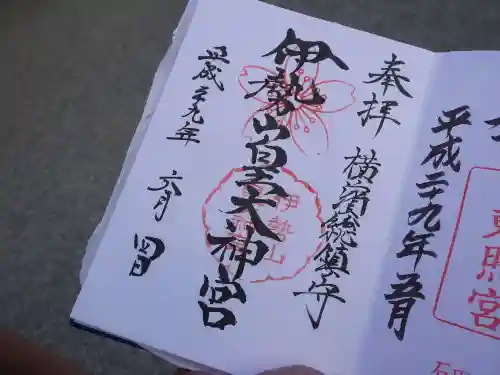 平成二九年五月
東照宮
奉拝
横濱総鎮守
伊勢山皇大神宮
伊勢山
平成二九年
六月
四日